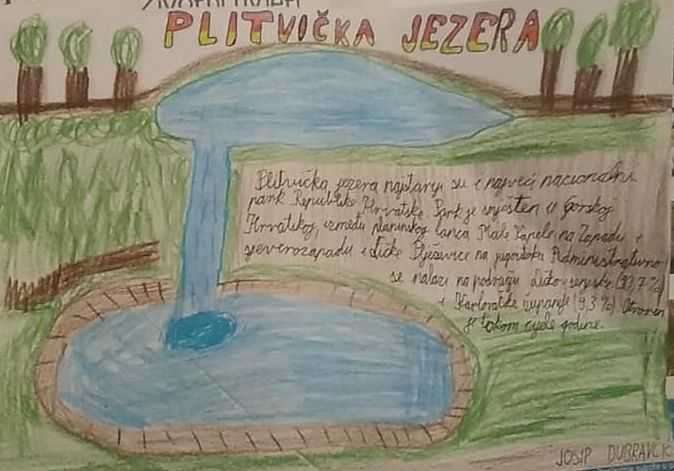 PLITVIČKA JEZERA
Plitvička jezera najstariji su i najveći nacionalni
park Republike Hrvatske. Park je smješten u Gorskoj
Hrvatskoj, između planinskog lanca Male Kapele na Zapadu i
sjeverozapadu i ličke Plješivice na jugoistoku. Administrativno
se nalazi na području Ličko-senjske (93,7%)
i Karlovačke županije (9,3%). Otvoren
je tokom cijele godine.
JOSIP